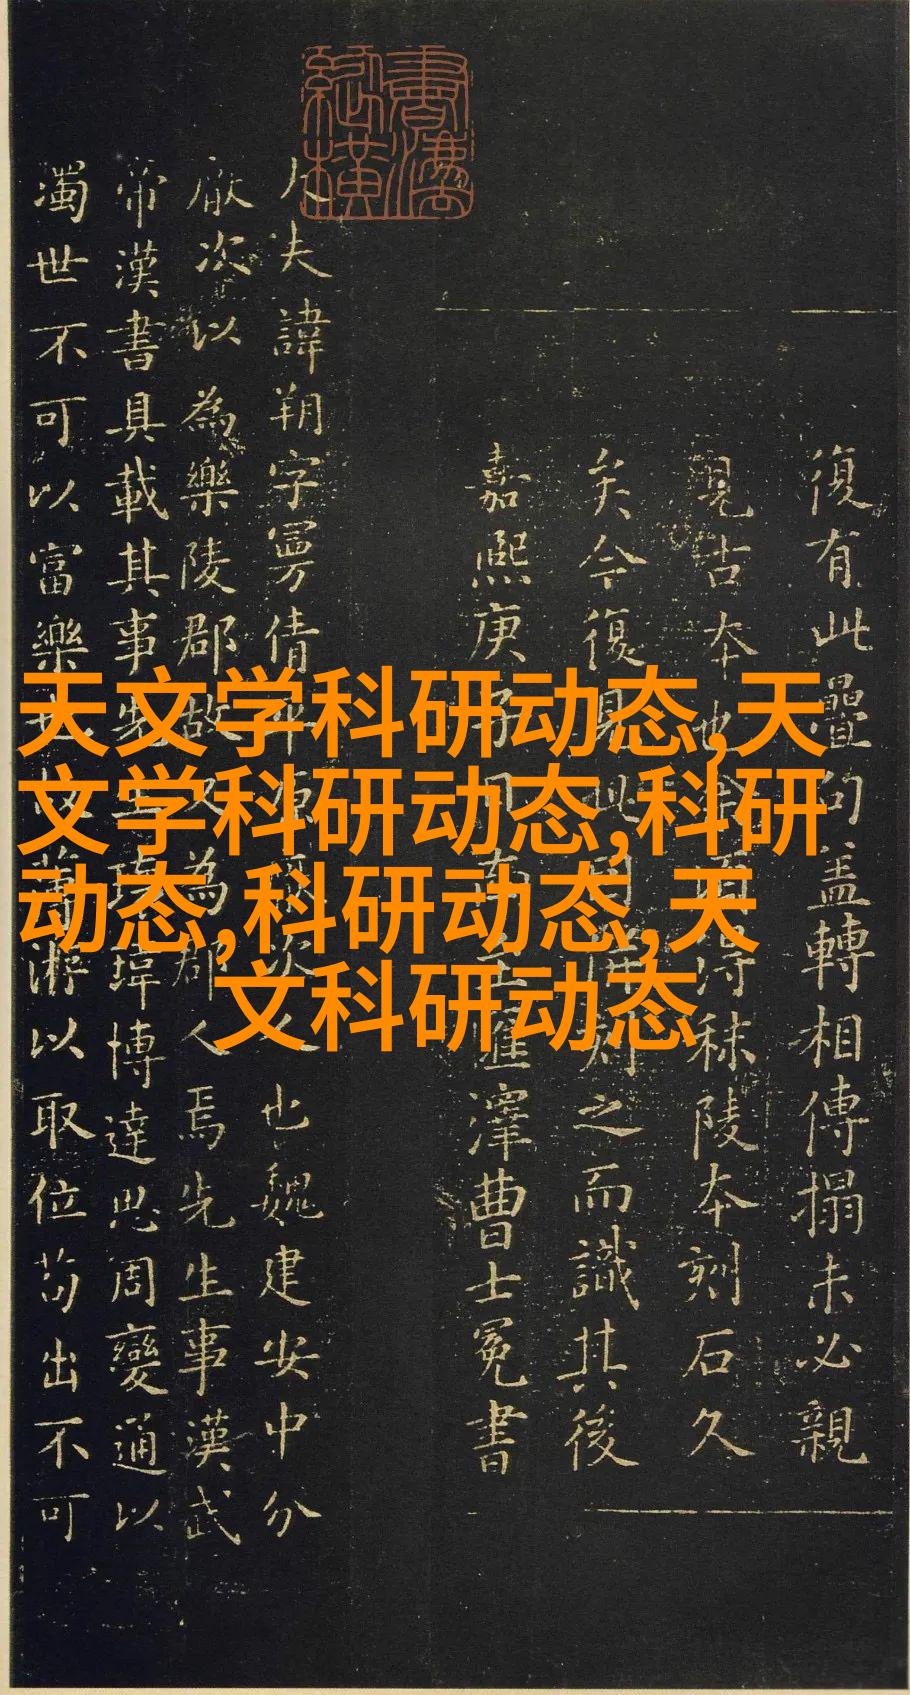 天文学科研动态,天
文学科研动态,科研
动态,科研动态,天
文科研动态
復有此疊句盖轉相傳搨未必親
見古本也秣陵本刻石久
矣今復見之而識其後
嘉熙庚滙澤曹士冕書
大夫諱朔字曼倩也魏建安中分
厭次以為樂陵郡故又為郡人焉先生事漢武
帝漢書具載其事先瑋博達思周變通以
濁世不可以富樂游以取位苟出不可